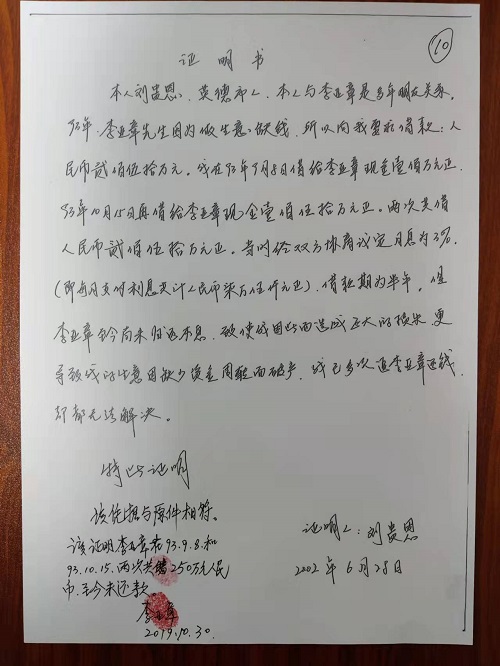 10
证明书
本人刘贵恩，英德市人，本人与李亚章是多年朋友关系。
93年，李亚章先生因为做生意缺钱，所以向我要求借款：人
民币贰佰伍拾万元。我在93年9月8日借给李亚章现金壹佰万元正，
93年10月15日再借给李亚章现金壹佰伍拾万元正。两次共借
人民币贰佰伍拾万元正。当时经双方协商议定月息为3%，
(即每月支付利息共计人民币柒万伍仟元正)，借款期为半年，但
李亚章至今尚未归还本息，致使我因此而造成巨大的损失，更
导致我的生意因缺少资金周转而破产，我已多次追李亚章还钱，
却都无法解决。
特此证明
该凭据与原件相符。
该证明李亚章于93.9.8.和
93.10.15.两次共借250万元人民
币.至今未还款。
李亚章
2019.10.30.
证明人：刘贵恩
2002年6月28日